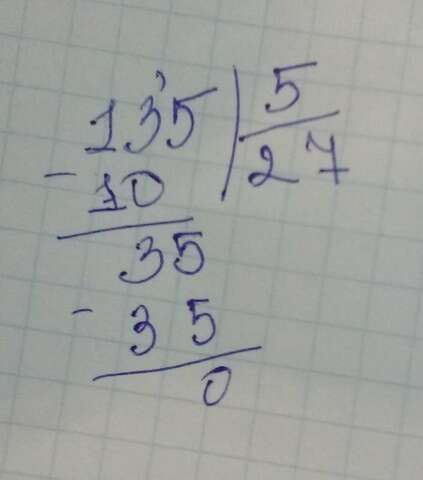 135 | 5
- 10 | 27
35
- 35
0